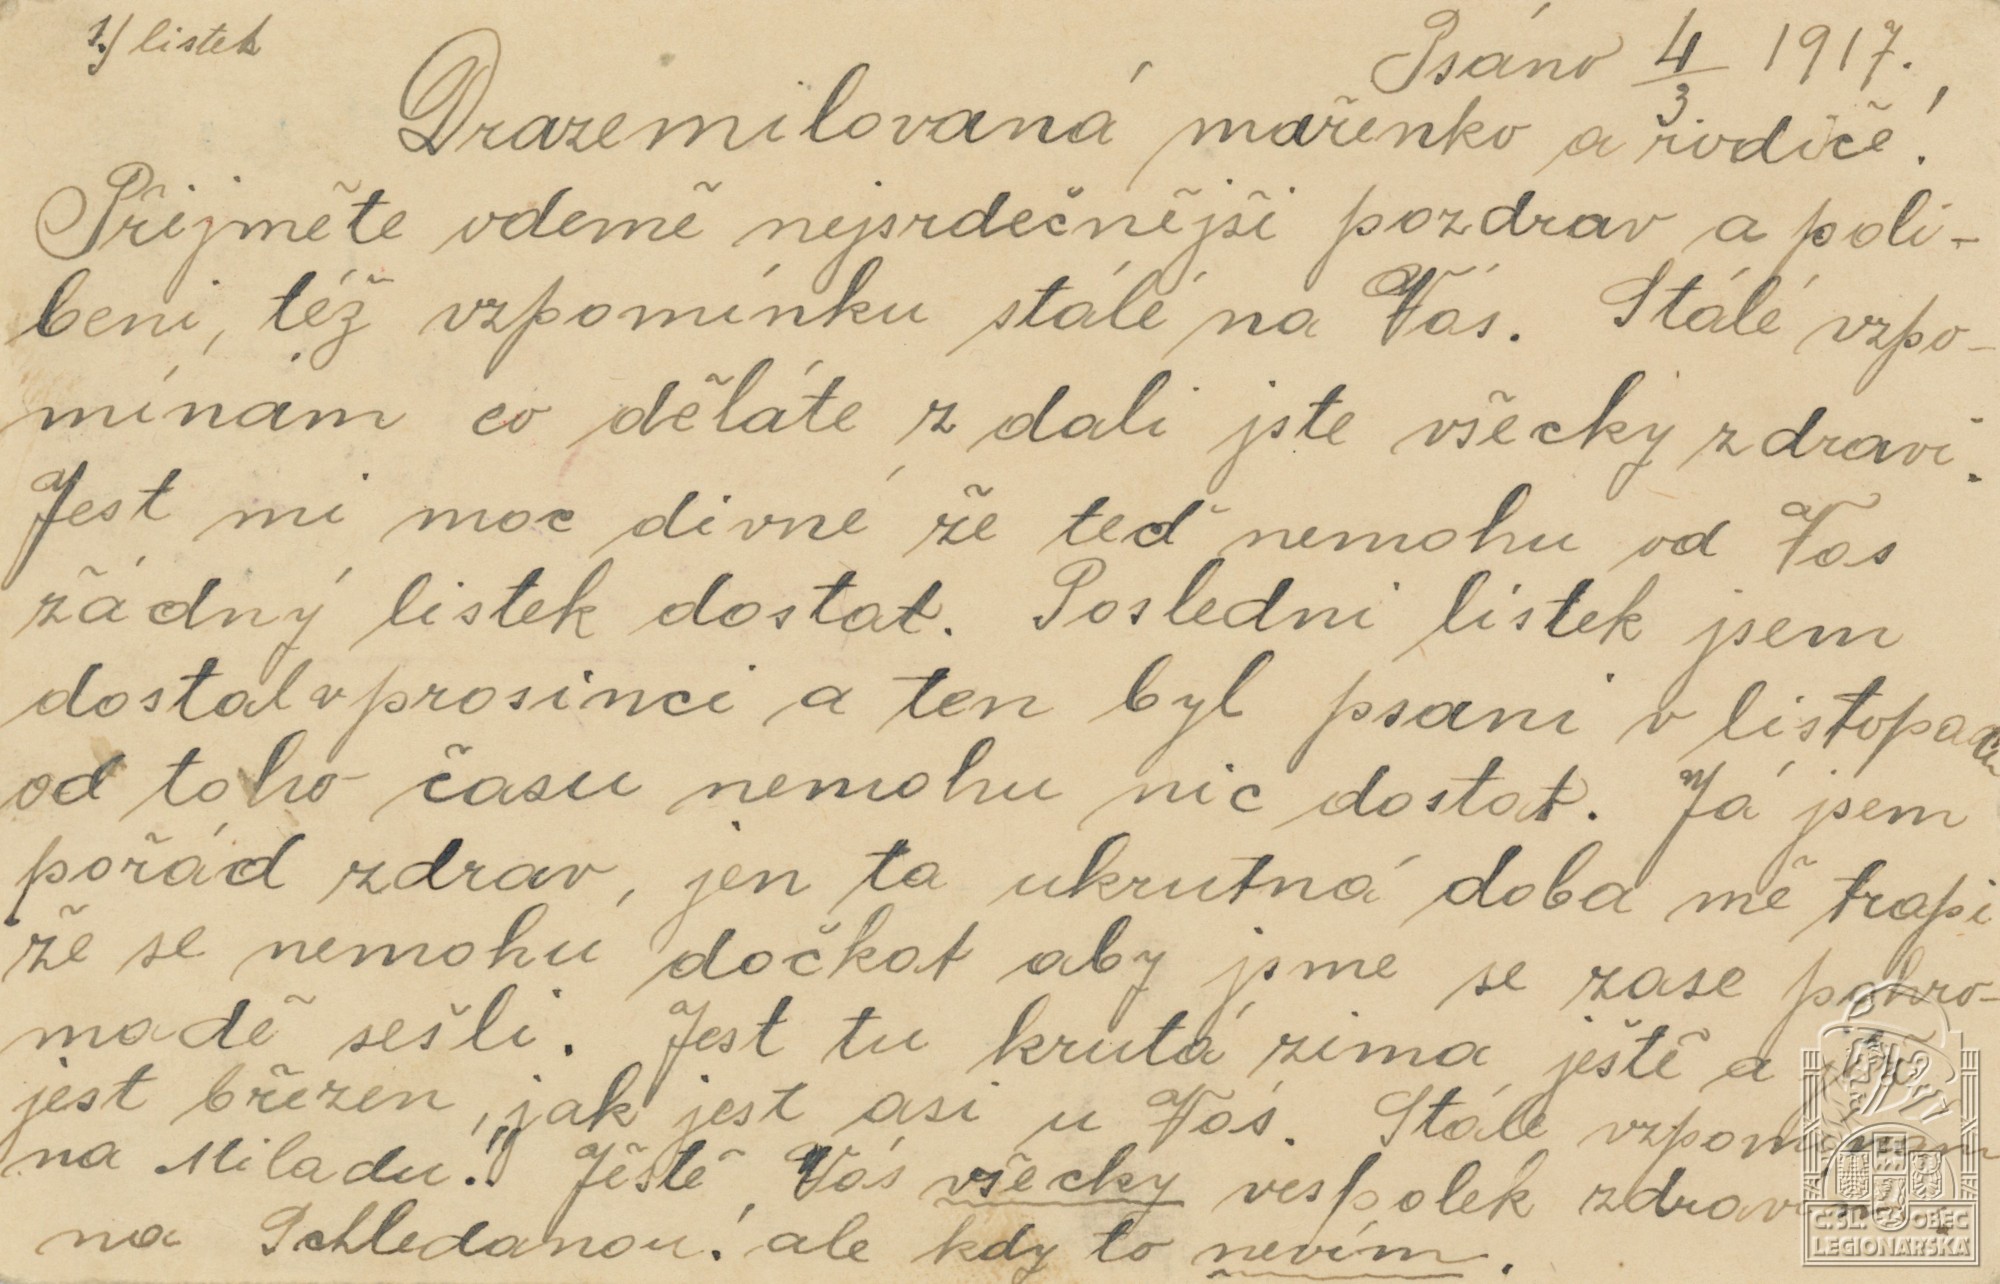 1.) listek
Psáno 4/3 1917.
Drazemilovaná mařenko a řodiče!
Přijměte odemě nejsrdečnějši pozdrav a poli-
beni, též vzpomínku stálé na Vás. Stálé vzpo-
mínám co děláte z dali jste všecky zdravi.
Jest mi moc divné že teď nemohu od Vas
žádný listek dostat. Posledni listek jsem
dostal v prosinci a ten byl psani v listopadu
od toho času nemohu nic dostat. Já jsem
pořád zdrav, jen ta ukrutná doba mě trapi
že se nemohu dočkat aby jsme se zase pohro-
madě sešli. Jest tu krutá zima ještě a
jest březen, jak jest asi u Vás. Stálé vzpomínam
na Miladu! Jěště Vás všecky vespolek zdravim
na Schledanou! ale kdy to nevím.
Č. SL. OBEC
LEGIONÁŘSKÁ